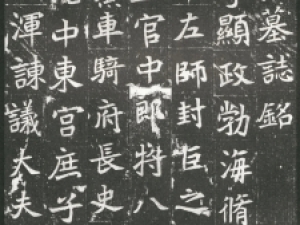 墓誌銘
顯政勃海脩
左師封巨之
官中郎将八
車騎府長史
中東宫庶子
渾諫議大夫